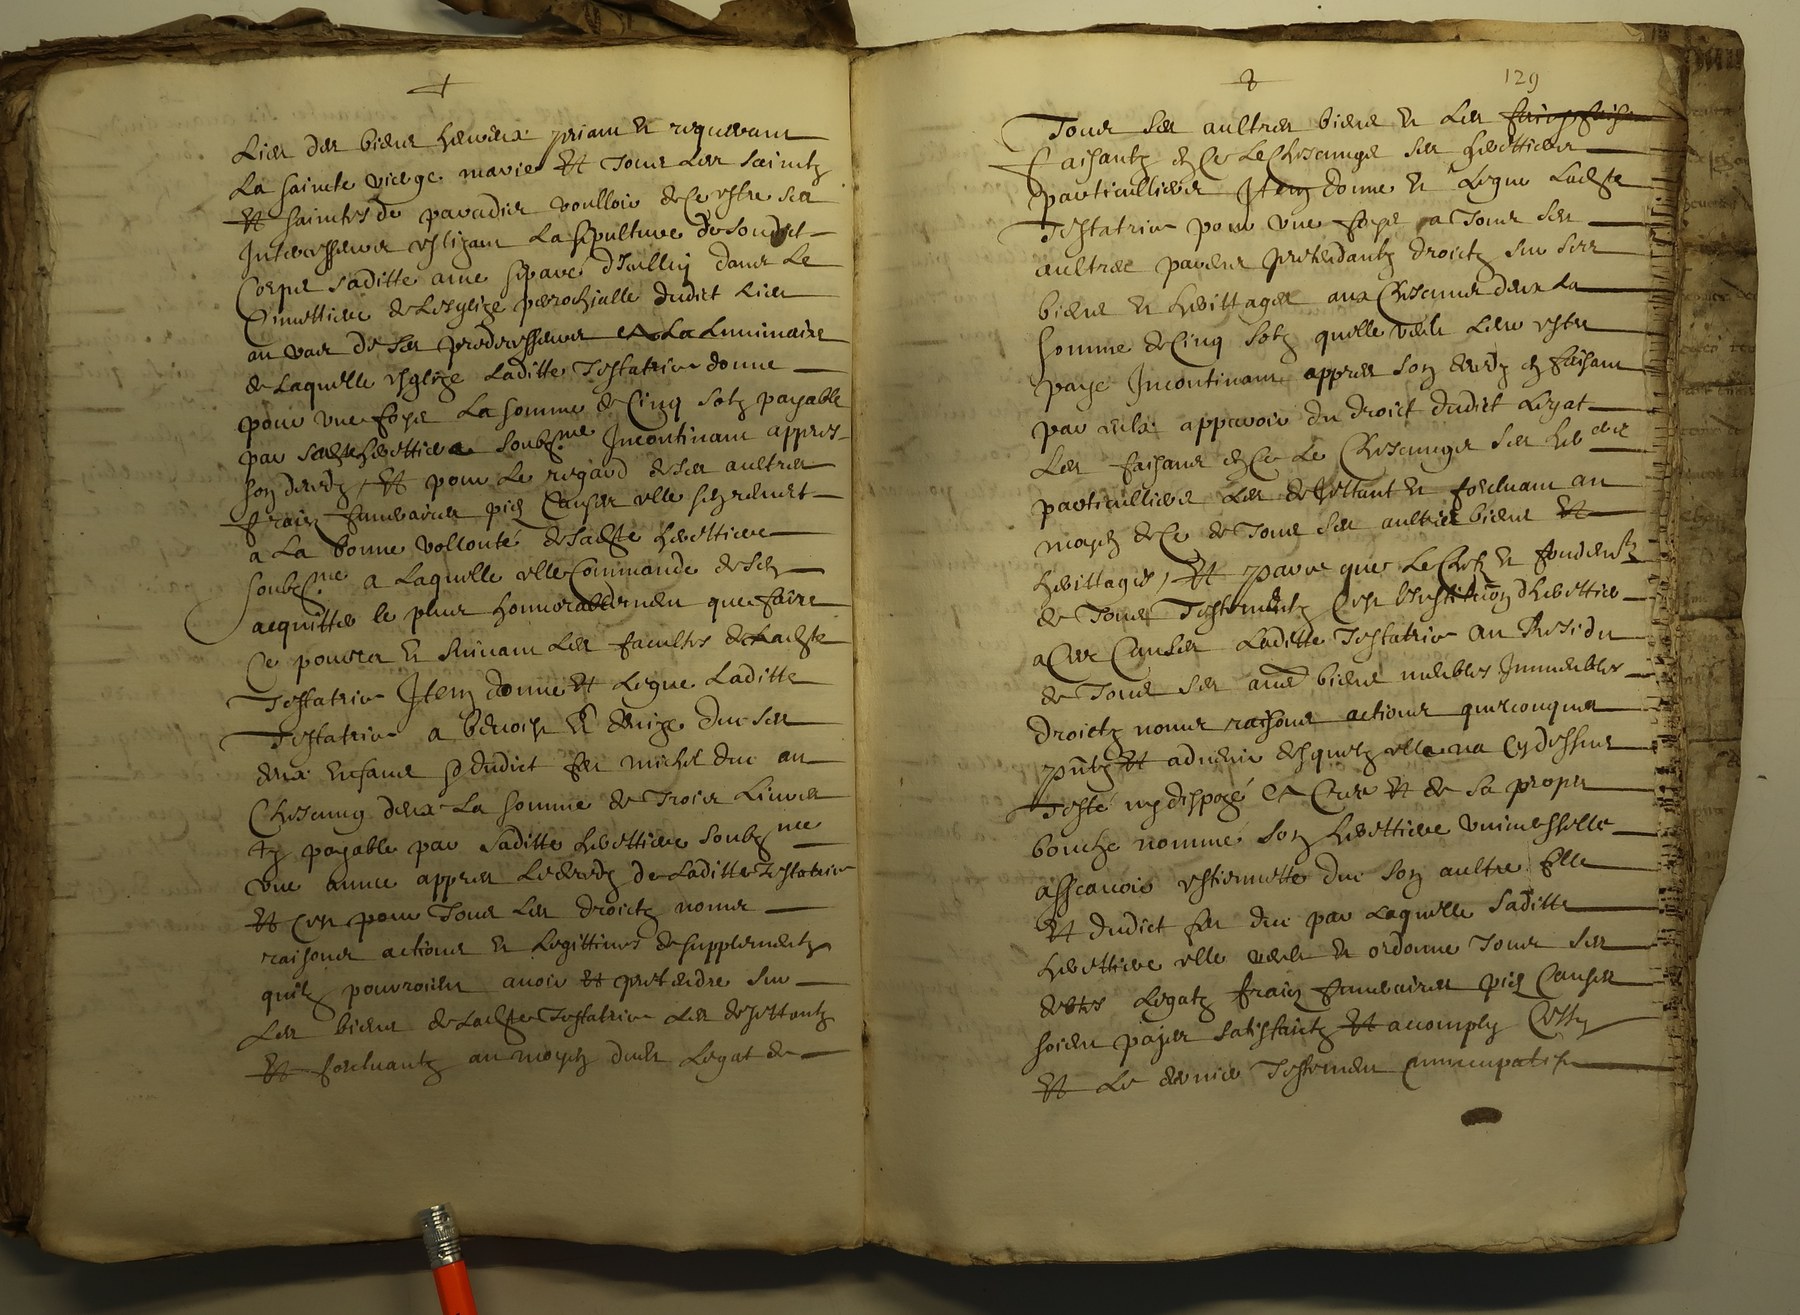 Lieu des biens heureux priant et requerant
La saincte vierge marie Et Tous Les Sainctz
Et sainctes de paradis voulloir de Ce estre ses
Intercesseurs eslizant La sepulture de sondict
Corps saditte ame separé d'Icelluy dans Le
Cimettiere de Lesglize parochialle dudict Lieu
au vas de ses predecesseurs et La Luminaire
de Laquelle esglize Laditte Testatrice donne
pour une foys La somme de Cinq solz payable
par sadte herettiere soubzne Incontinant appres
son deces, Et pour Le regard de ses aultres
fraiz funeraires pies Causes elle sen remet
a La bonne vollonté de sadte herettiere
soubzne a Laquelle elle Commande de sen
acquitter le plus honnorablement que faire
Ce pourra et suivant Les facultes de Ladte
Testatrice Item donne Et Legue Laditte
Testatrice a benoist et denize duc ses
deux enfans et dudict feu michel duc au
Chescung deux La somme de Trois Livres
tz payable par saditte herettiere soubzne
une annee appres Le deces de Laditte Testatrice
Et Cest pour Tous Les droictz noms
raisons actions et Legittimes de supplementz
quilz pourroient avoir Et pretendre sur
Les biens de Ladte Testatrice Les desjettantz
Et forcluantz au moyen dudict Legat de
129
Tous ses aultres biens et Les
faisantz en Ce Le Chescungs ses herettiers
particulliers Item donne et Legue Ladte
Testatrice pour une foys a Tous ses
aultres parens pretendantz droictz sur ses
biens et herittages aux Chescuns deux La
somme de Cinq solz quelle veult Leur estre
paye Incontinant appres son deces en faisant
par eulx apparoir du droict dudict Legat
Les faisans en Ce Le Chescungs ses heres
particulliers Les dejettant et forcluant au
moyen de Ce de Tous ses aultres biens Et
herittages, Et parce que Le Chef et fondement
de Tous Testamentz Cest Institution dherettier
a Ces Causes Laditte Testatrice au Residu
de Tous ses aues biens meubles Immeubles
droictz noms raisons actions quelconques
pntz Et advenir desquelz elle na Cy dessus
Testé ny dispozé Et Cree Et de sa propre
bouche nomme son herettiere universelle
assçavoir estiennette duc son aultre fille
Et dudict feu duc par Laquelle saditte
herettiere elle veult et ordonne Tous ses
debtes Legatz fraiz funeraires pies Causes
soient payes satisfaictz Et acomply Cest
Et Le dernier Testament nuncupatif